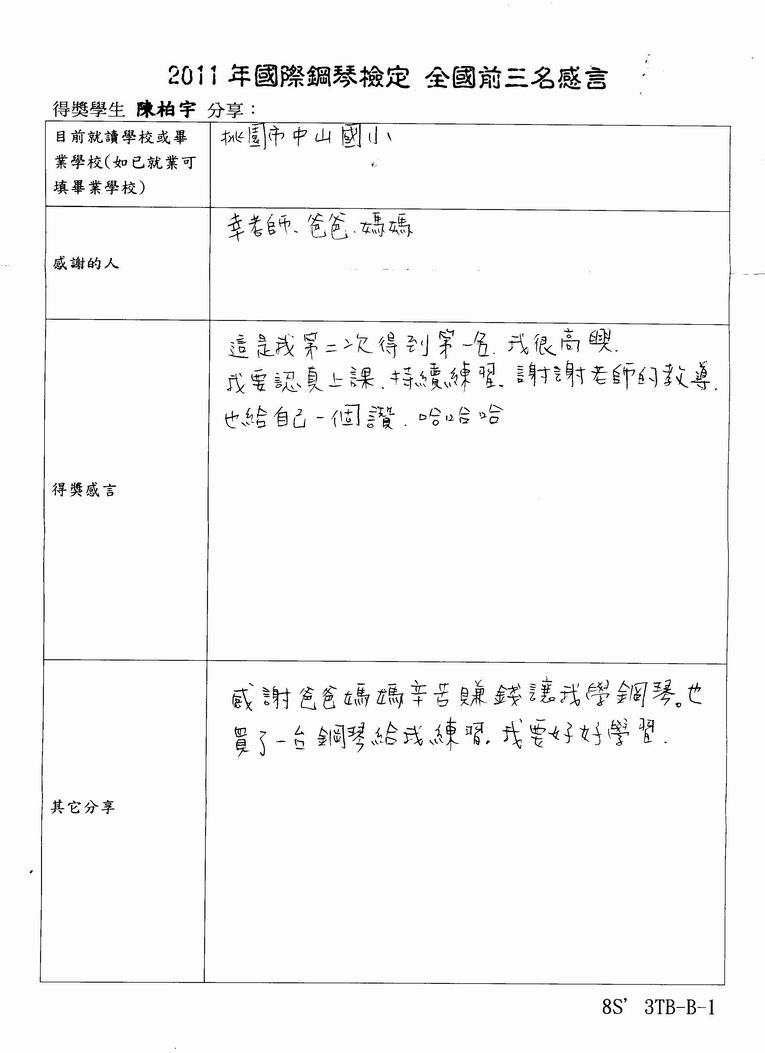 2011年國際鋼琴檢定 全國前三名感言
得獎學生 陳柏宇 分享：
目前就讀學校或畢
業學校(如已就業可
填畢業學校)
桃園市中山國小
感謝的人
幸老師、爸爸、媽媽
得獎感言
這是我第二次得到第一名.我很高興.
我要認真上課.持續練習.謝謝老師的教導.
也給自己一個讚.哈哈哈
其它分享
感謝爸爸媽媽辛苦賺錢讓我學鋼琴。也
買了一台鋼琴給我練習.我要好好學習.
8S' 3TB-B-1